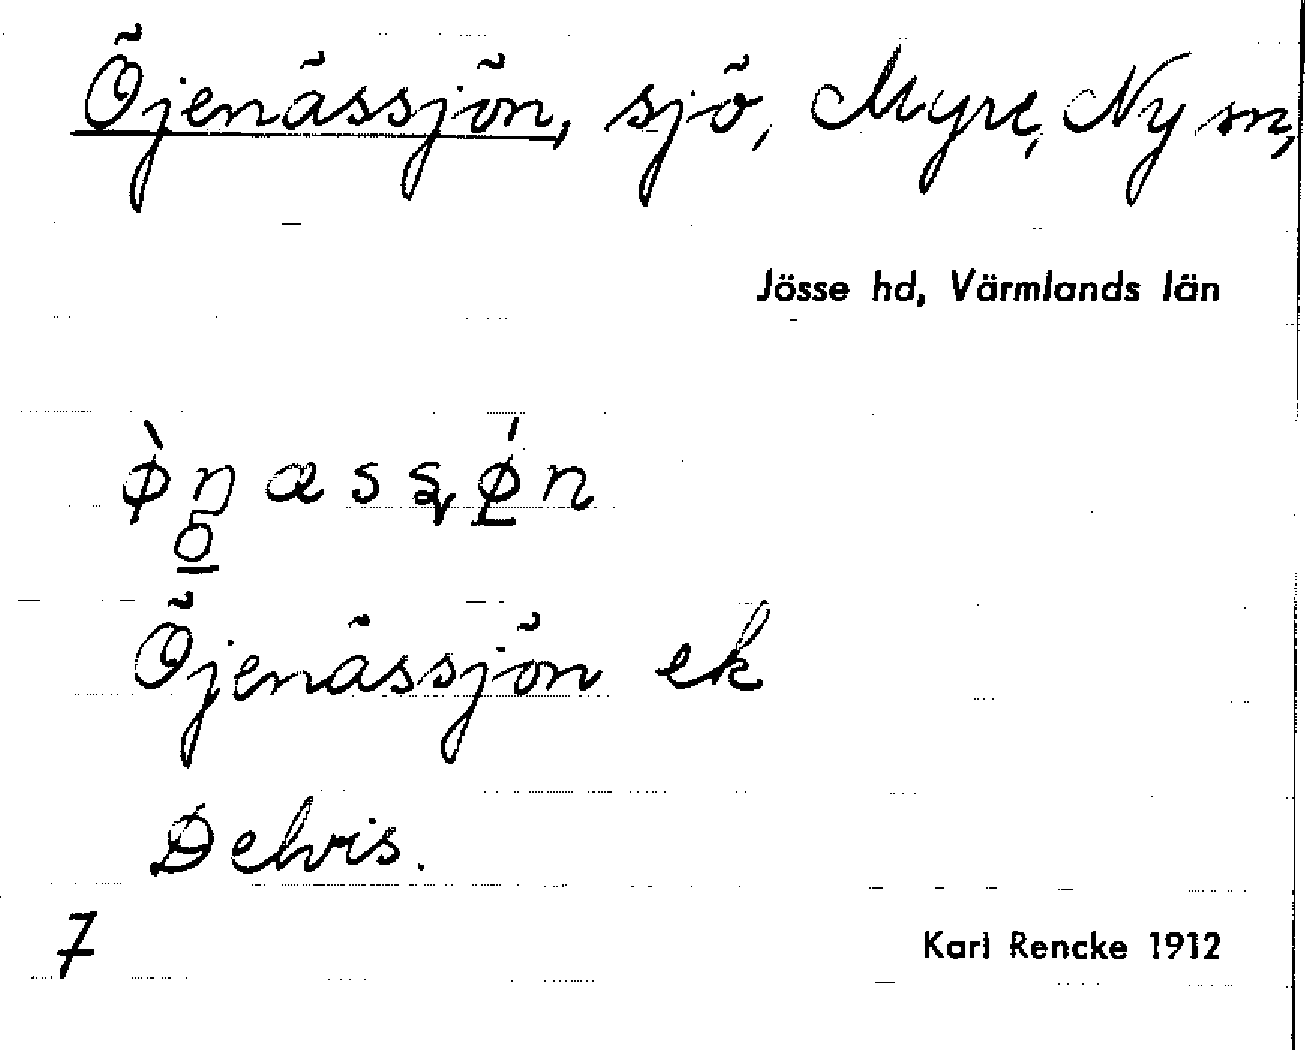 Öjenässjön, sjö, Myre, Ny sn,
Jösse hd, Värmlands län
Öjenässjön ek
Delvis.
7
Karl Rencke 1912